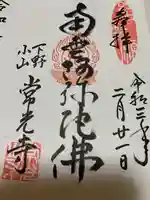 奉拝
令和三年
二月廿一日
南無阿弥陀佛
下野
小山
常光寺